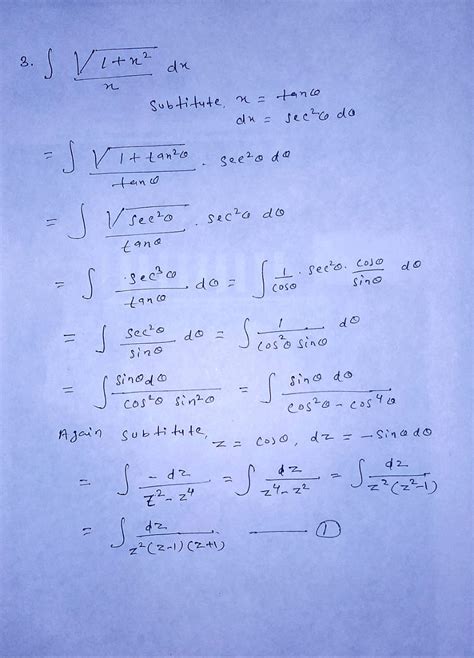 3. ∫ √(1+x²) / x dx
Subtitute, x = tanθ
dx = sec²θ dθ
= ∫ √(1+tan²θ) / tanθ . sec²θ dθ
= ∫ √(sec²θ) / tanθ . sec²θ dθ
= ∫ sec³θ / tanθ . dθ = ∫ 1/cosθ . sec²θ . cosθ/sinθ dθ
= ∫ sec²θ / sinθ dθ = ∫ 1 / (cos²θ sinθ) dθ
= ∫ sinθ dθ / (cos²θ sin²θ) = ∫ sinθ dθ / (cos²θ - cos⁴θ)
Again subtitute, z = cosθ, dz = -sinθ dθ
= ∫ -dz / (z² - z⁴) = ∫ dz / (z⁴ - z²) = ∫ dz / (z²(z²-1))
= ∫ dz / (z²(z-1)(z+1)) —— ①